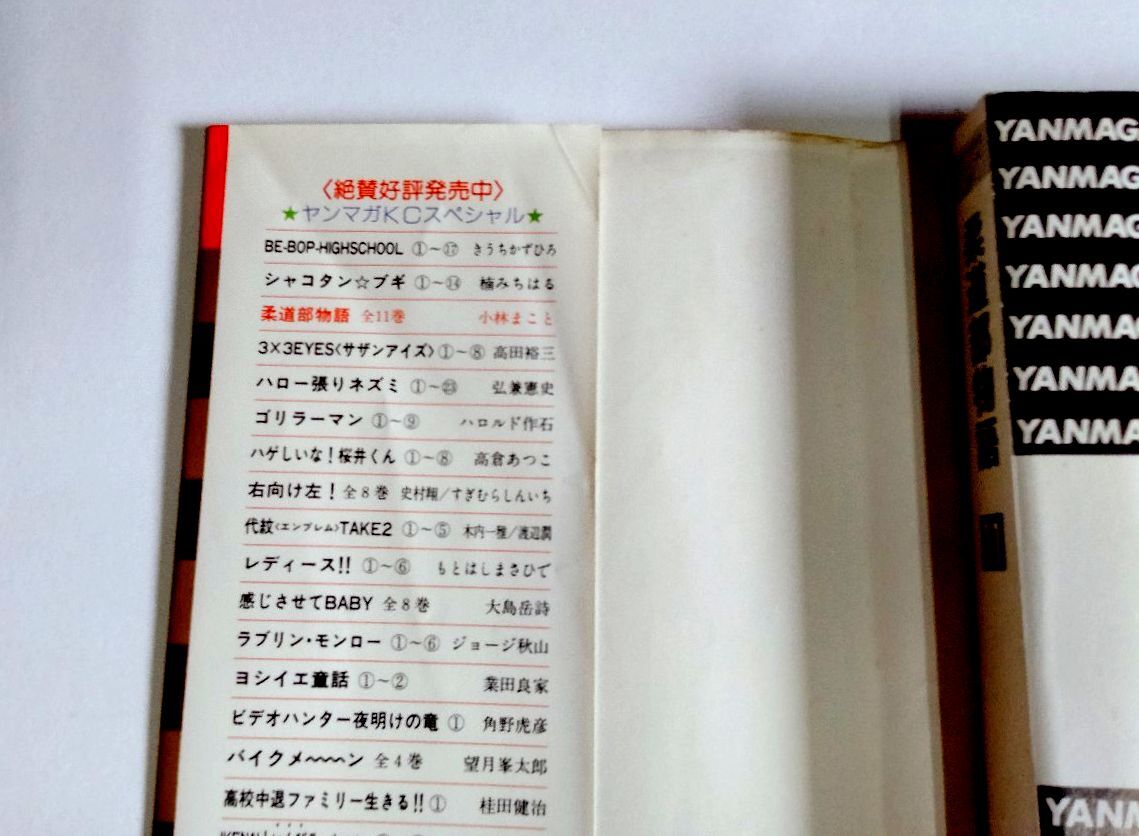 〈絶賛好評発売中〉
★ヤンマガKCスペシャル★
BE-BOP-HIGHSCHOOL ①〜⑰ きうちかずひろ
シャコタン☆ブギ ①〜⑭ 楠みちはる
柔道部物語 全11巻 小林まこと
3×3EYES〈サザンアイズ〉①〜⑧ 高田裕三
ハロー張りネズミ ①〜㉓ 弘兼憲史
ゴリラーマン ①〜⑨ ハロルド作石
ハゲしいな!桜井くん ①〜⑧ 高倉あつこ
右向け左! 全8巻 史村翔/すぎむらしんいち
代紋〈エンブレム〉TAKE2 ①〜⑤ 木内一雅/渡辺潤
レディース!! ①〜⑥ もとはしまさひで
感じさせてBABY 全8巻 大島岳詩
ラブリン・モンロー ①〜⑥ ジョージ秋山
ヨシイエ童話 ①〜② 業田良家
ビデオハンター夜明けの竜 ① 角野虎彦
バイクメ〜〜〜ン 全4巻 望月峯太郎
高校中退ファミリー生きる!! ① 桂田健治
YANMAG
YANMAG
YANMAG
YANMAG
YANMA
YANMA
YANMA
YANM